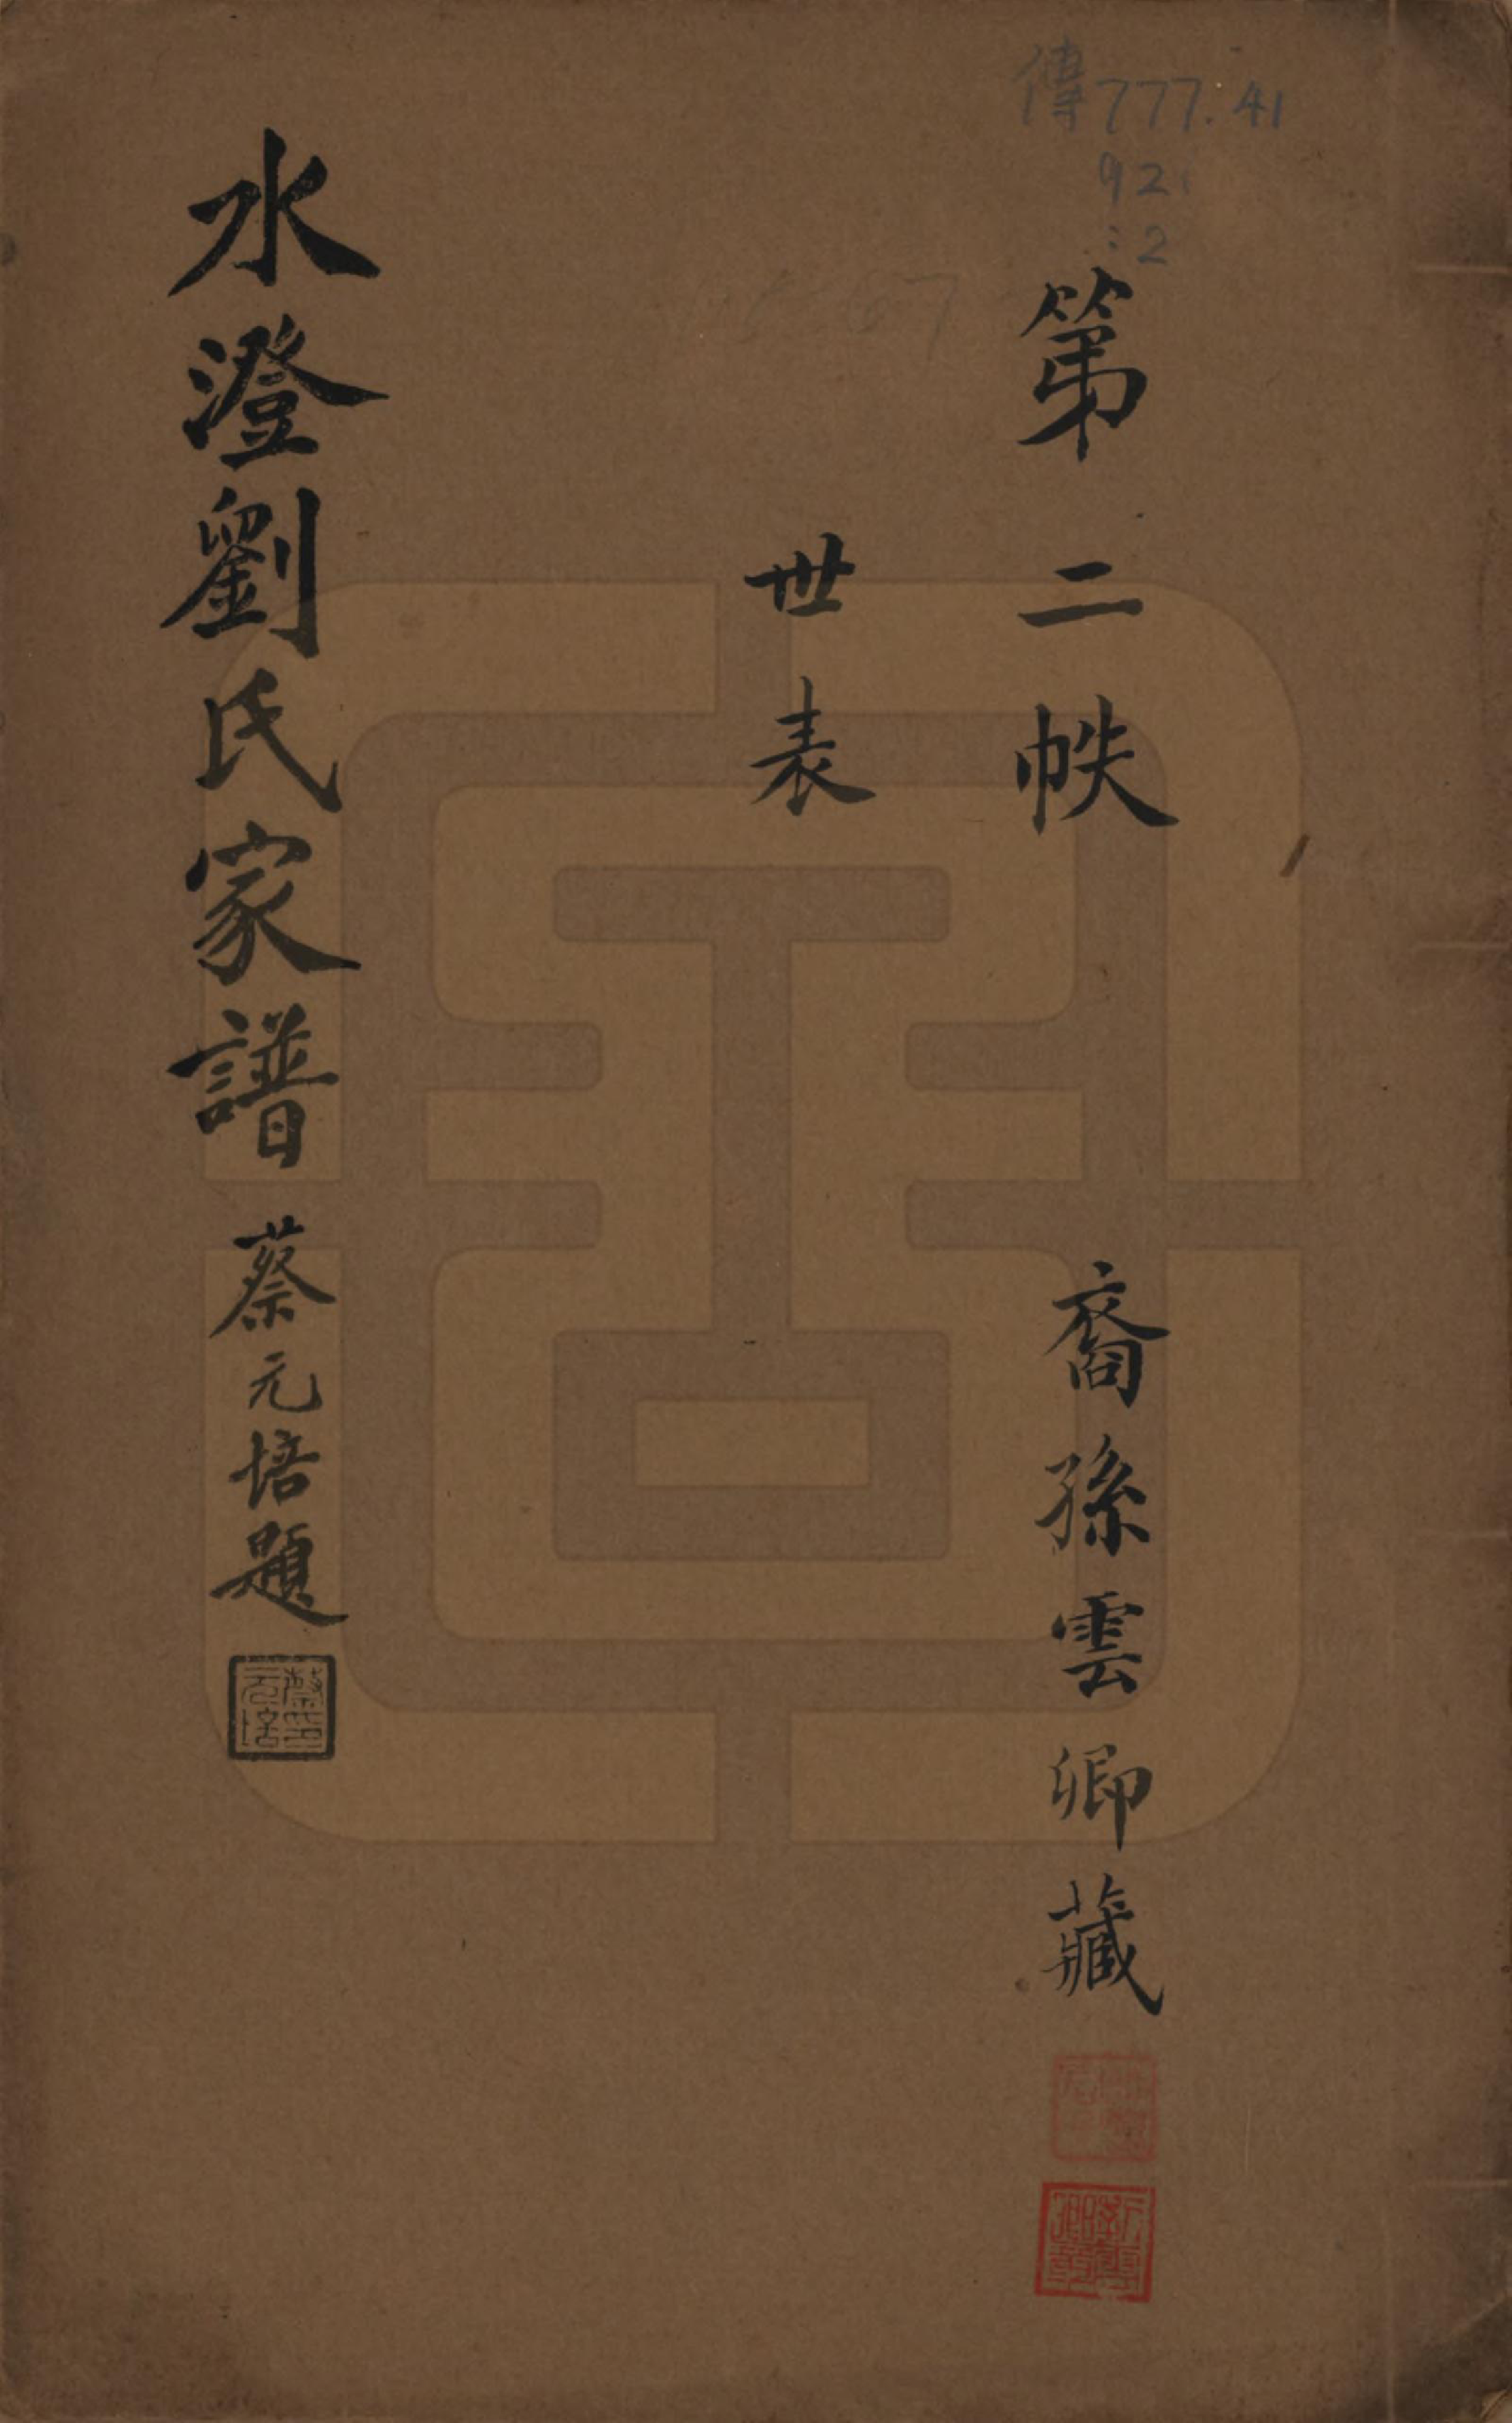 傳777.41
921
:2
第二帙
裔孫雲卿藏
世表
水澄劉氏家譜
蔡元培題
蔡元培印